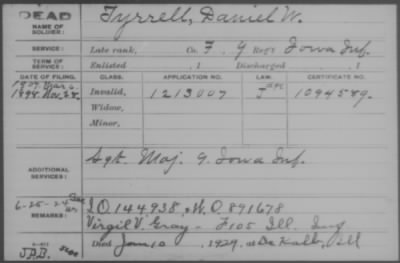 DEAD
NAME OF SOLDIER: Tyrrell, Daniel W.
SERVICE: Late rank, Co. F. 9 Reg't Iowa Inf.
TERM OF SERVICE: Enlisted , 1 Discharged , 1
DATE OF FILING. CLASS. APPLICATION NO. LAW. CERTIFICATE NO.
1898 Nov. 28. Invalid, 1213007 J 1094589.
Widow,
Minor,
ADDITIONAL SERVICES: Sgt. Maj. 9. Iowa Inf.
6-25-24
REMARKS: I.O. 144,938, W.O. 891678
Virgil V. Gray - F 105 Ill. Inf
J.P.B. Died June 10, 1924, at De Kalb, Ill